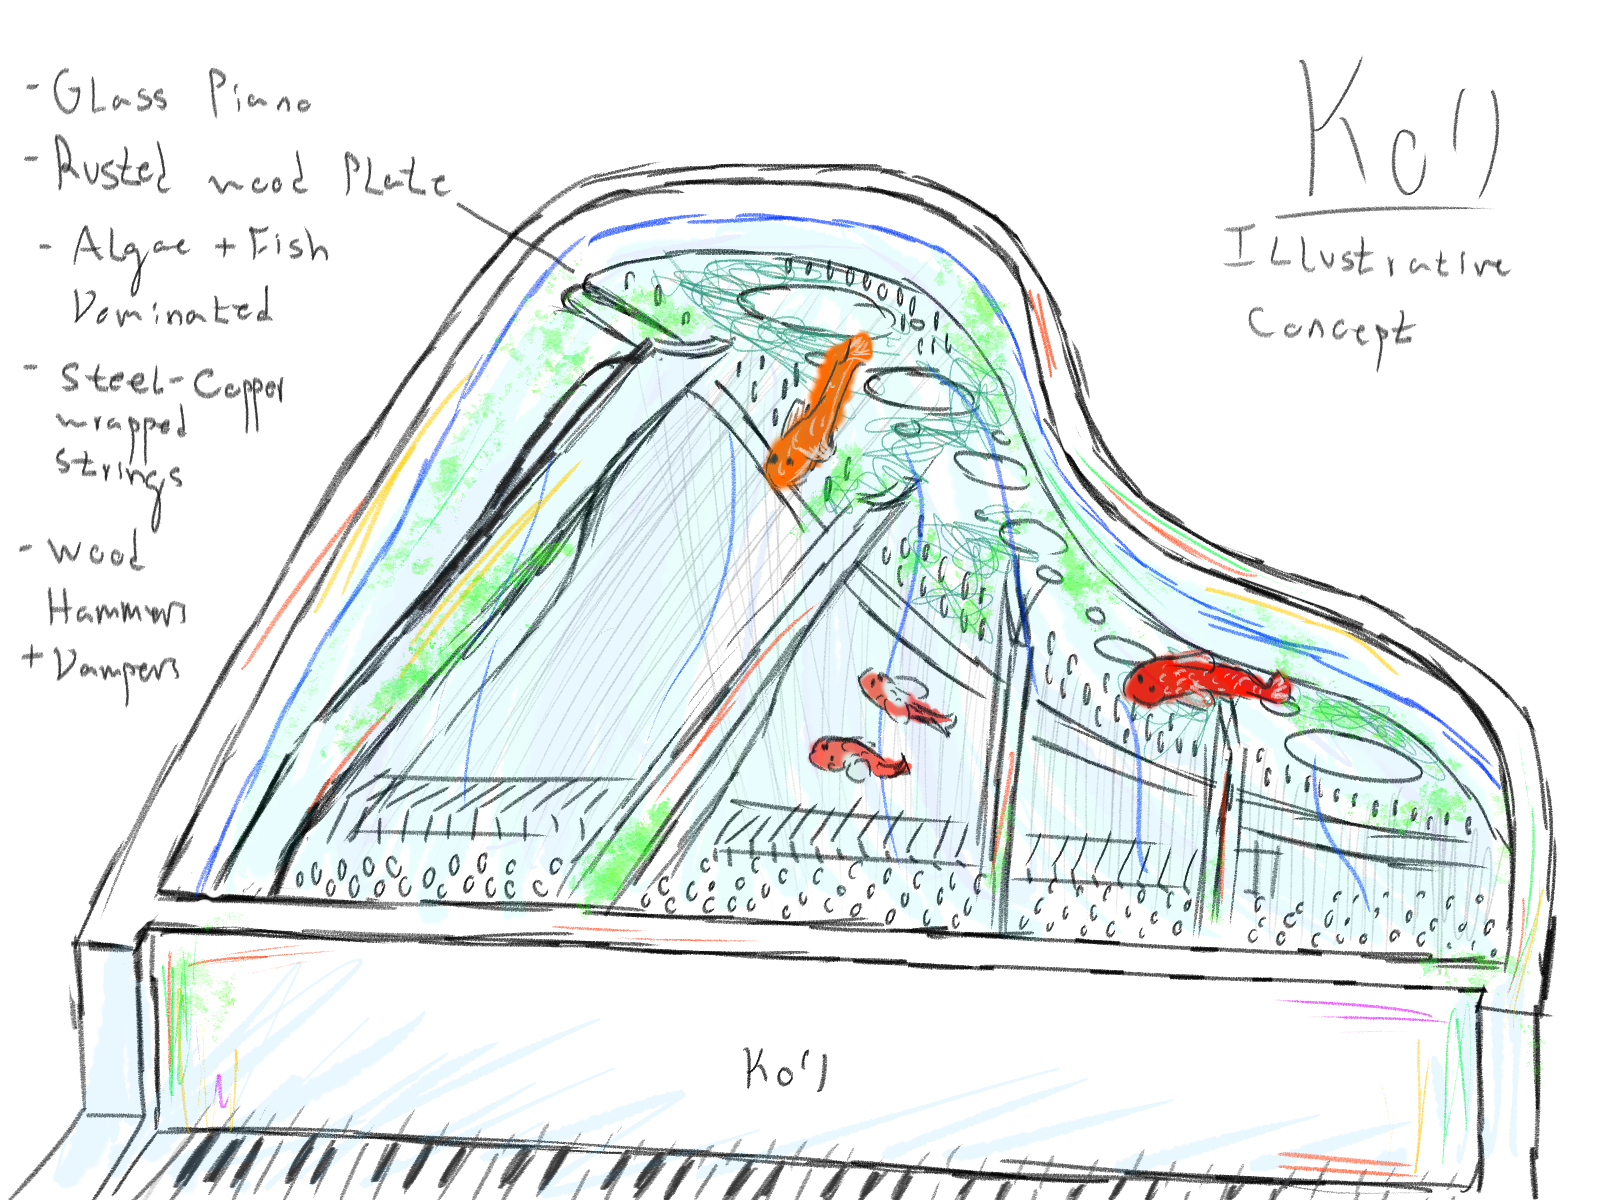 - Glass Piano
- Rusted wood Plate
- Algae + Fish
Dominated
- Steel-Copper
wrapped
strings
- Wood
Hammers
+ Dampers
Ko'i
Illustrative
Concept
Ko'i